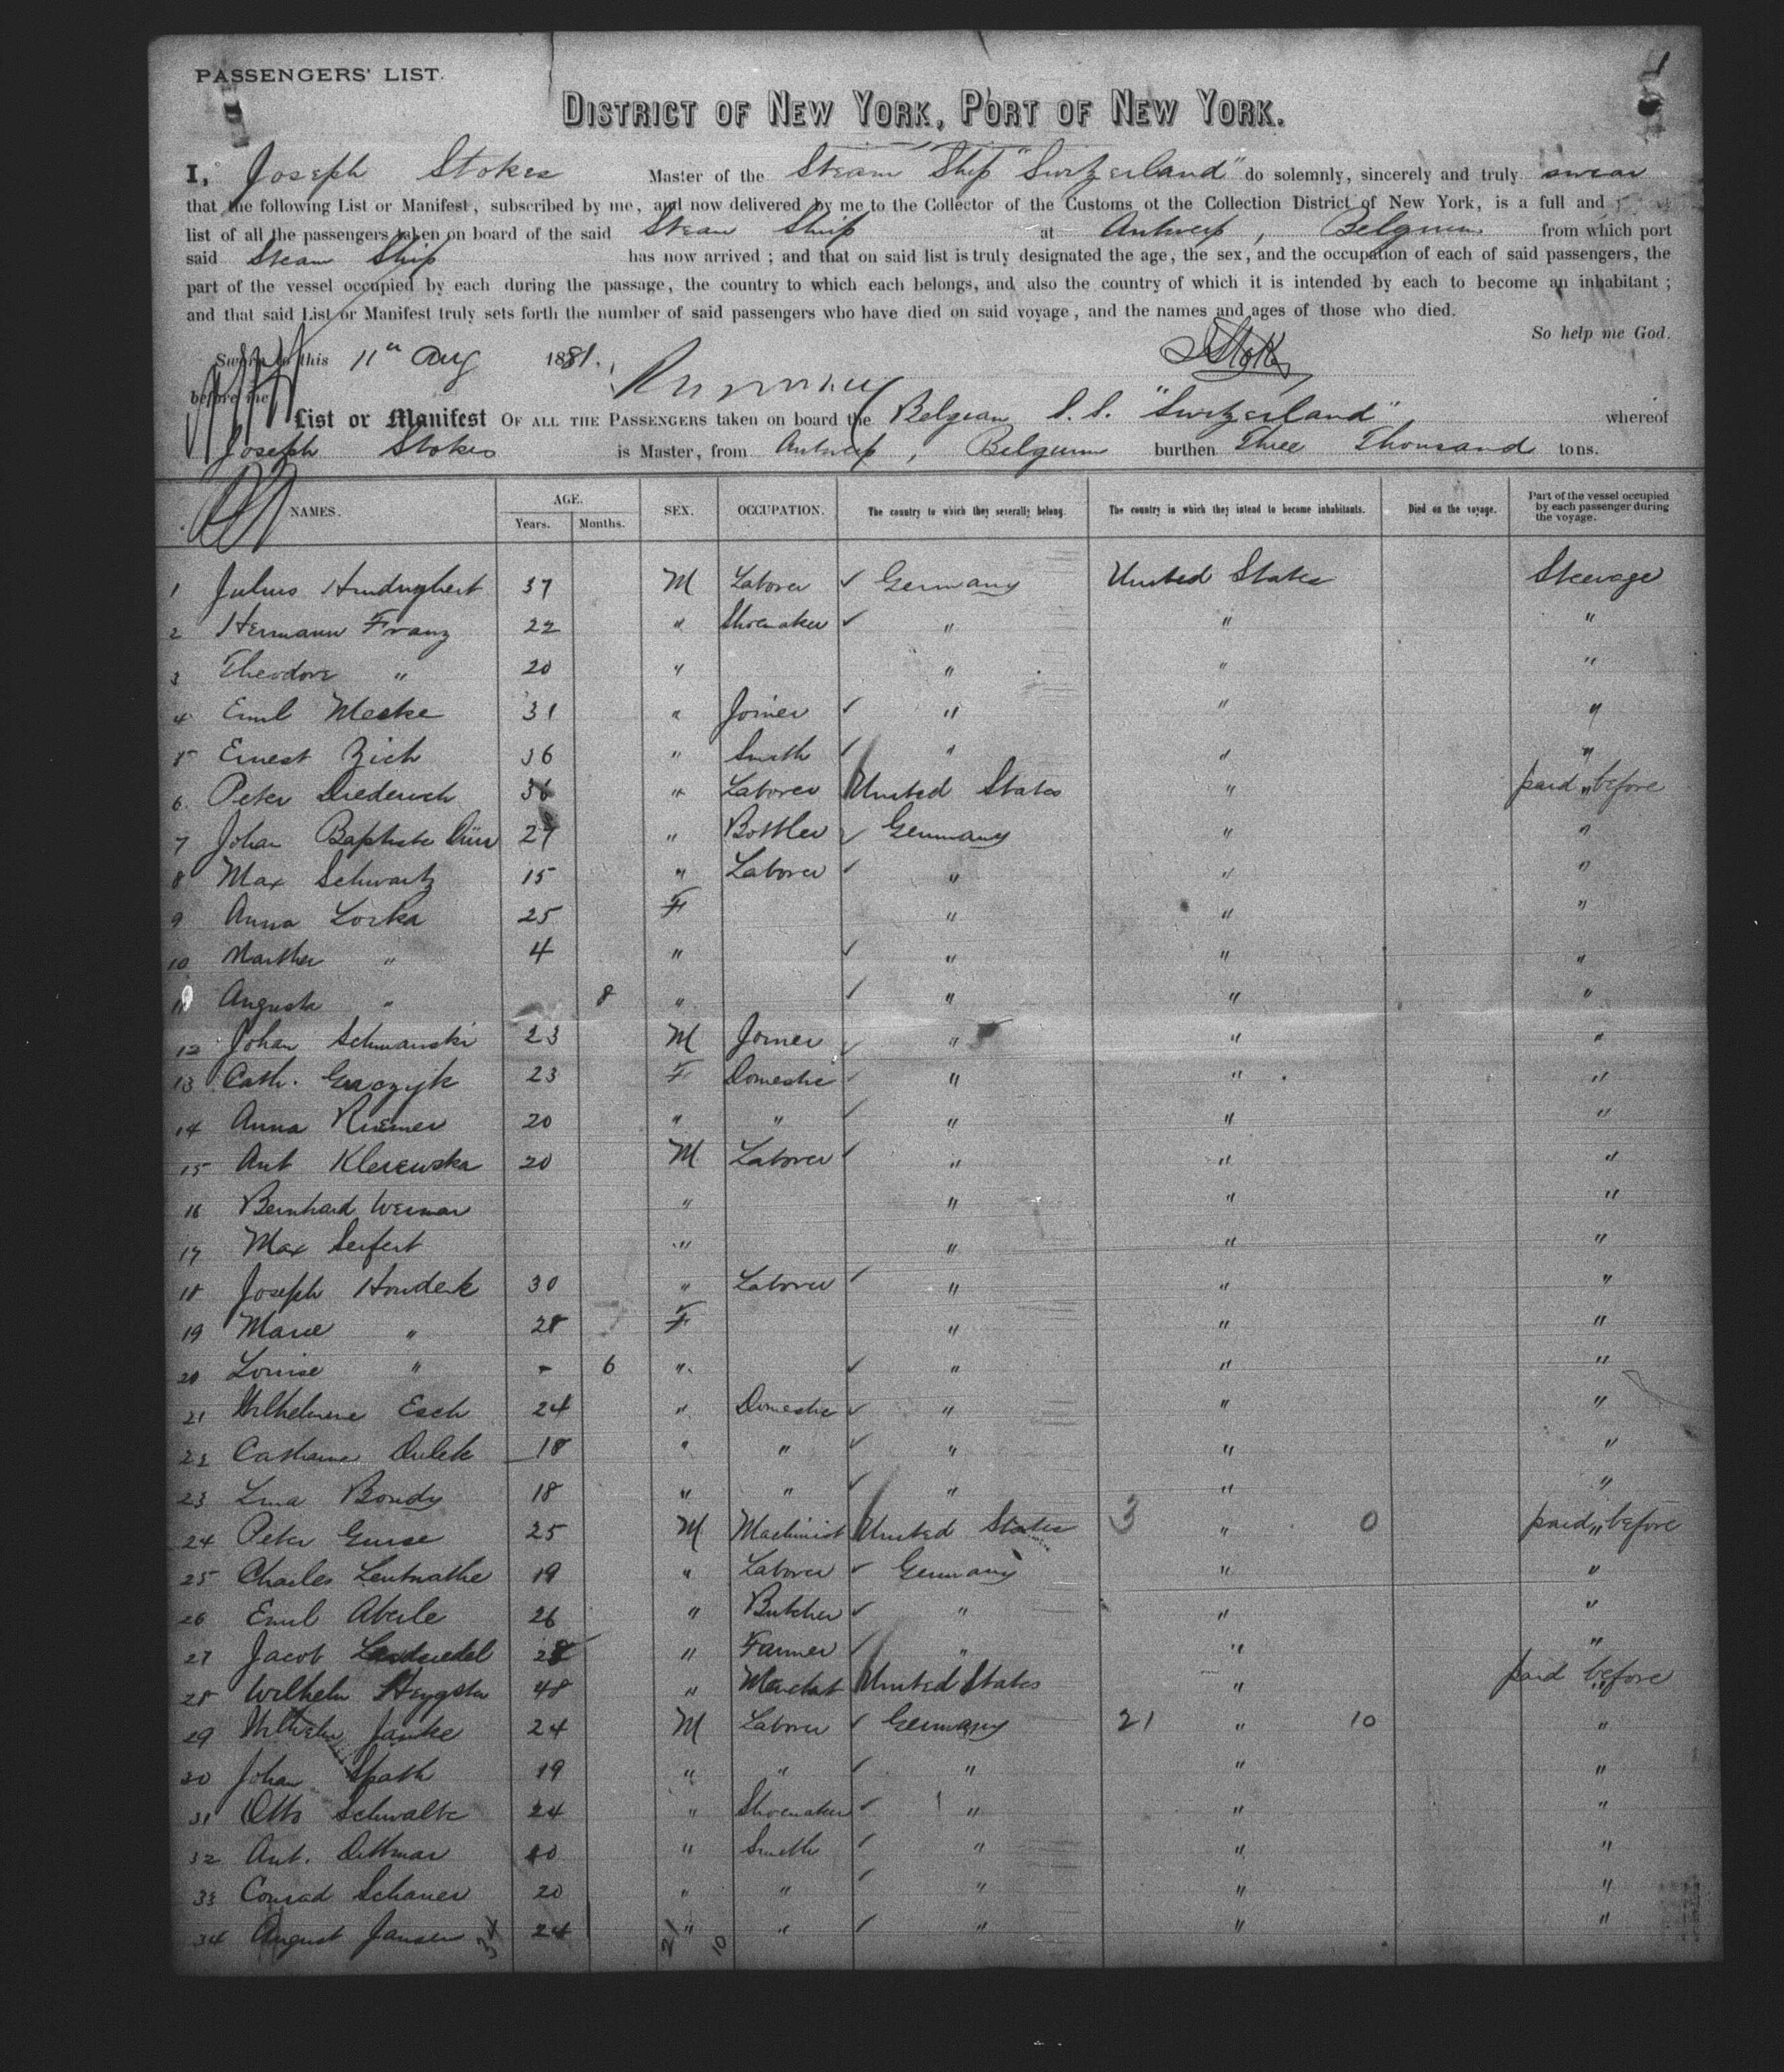 PASSENGERS' LIST.
1
DISTRICT OF NEW YORK, PORT OF NEW YORK.
I, Joseph Stokes Master of the Steam Ship "Switzerland" do solemnly, sincerely and truly swear
that the following List or Manifest, subscribed by me, and now delivered by me to the Collector of the Customs ot the Collection District of New York, is a full and
list of all the passengers taken on board of the said Steam Ship at Antwerp, Belgium from which port
said Steam Ship has now arrived; and that on said list is truly designated the age, the sex, and the occupation of each of said passengers, the
part of the vessel occupied by each during the passage, the country to which each belongs, and also the country of which it is intended by each to become an inhabitant;
and that said List or Manifest truly sets forth the number of said passengers who have died on said voyage, and the names and ages of those who died.
So help me God.
Sworn to this 11th Aug 1881. JStokes
before me
List or Manifest OF ALL THE PASSENGERS taken on board the Belgian S.S. "Switzerland" whereof
Joseph Stokes is Master, from Antwerp, Belgium burthen Three Thousand tons.
NAMES. AGE. Years. Months. SEX. OCCUPATION. The country to which they severally belong. The country in which they intend to become inhabitants. Died on the voyage. Part of the vessel occupied by each passenger during the voyage.
1 Julius 37 M Laborer ✓ Germany United States Steerage
2 Hermann Franz 22 " Shoemaker ✓ " " "
3 Theodore " 20 " " " "
4 Emil Meske 31 " Joiner ✓ " " "
5 Ernest Zich 36 " Smith ✓ " " "
6. Peter Diederich " Laborer United States " paid " before
7 Johan Baptiste Dürr 27 " Bottler ✓ Germany " "
8 Max Schwartz 15 " Laborer ✓ " " "
9 Anna Lorka 25 F " " "
10 Marthe " 4 " ✓ " " "
11 Augusta " 8 " ✓ " " "
12 Johan Schmanski 23 M Joiner ✓ " " "
13 Cath. Graczyk 23 F Domestic ✓ " " "
14 Anna Riemer 20 " " ✓ " " "
15 Ant Klerewska 20 M Laborer ✓ " " "
16 Bernhard Weimar " " " "
17 Max Seifert " " " "
18 Joseph Houdek 30 " Laborer ✓ " " "
19 Marie " 28 F " " "
20 Louise " - 6 " ✓ " " "
21 Wilhelmine Esch 24 " Domestic ✓ " " "
22 Catharina Dulek 18 " " ✓ " " "
23 Lina Bondy 18 " " ✓ " " "
24 Peter Gurse 25 M Machinist United States 3 " 0 paid " before
25 Charles Leutnathe 19 " Laborer ✓ Germany " "
26 Emil Aberle 26 " Butcher ✓ " " "
27 Jacob 28 " Farmer ✓ " " "
28 Wilhelm Heygster 48 " Merchant United States " paid before
29 Wilhelm Janke 24 M Laborer ✓ Germany 21 " 10 "
30 Johan Spath 19 " " ✓ " " "
31 Otto Schwalbe 24 " Shoemaker ✓ " " "
32 Ant. Dittmar 40 " Smith ✓ " " "
33 Conrad Schauer 20 " " ✓ " " "
34 August Jansen 34 24 21 " 10 " ✓ " " "